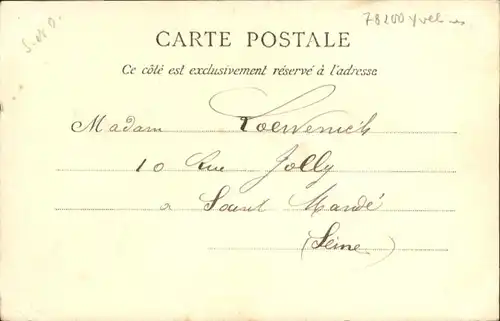 S. et O.
78200 Yvelines
CARTE POSTALE
Ce côté est exclusivement réservé à l'adresse
Madam Loewenick
10 Rue Jolly
a Saint Mandé
(Seine)